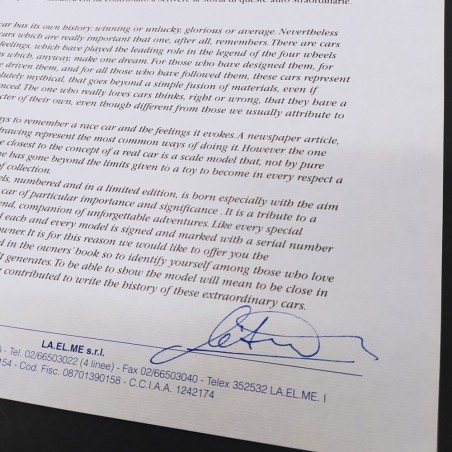 car has its own history: winning or unlucky, glorious or average. Nevertheless
cars which are really important that one, after all, remembers. There are cars
feelings, which have played the leading role in the legend of the four wheels
s which, anyway, make one dream. For those who have designed them, for
e driven them, and for all those who have followed them, these cars represent
lutely mythical, that goes beyond a simple fusion of materials, even if
nced. The one who really loves cars thinks, right or wrong, that they have a
cter of their own, even though different from those we usually attribute to
ys to remember a race car and the feelings it evokes. A newspaper article,
drawing represent the most common ways of doing it. However the one
e closest to the concept of a real car is a scale model that, not by pure
e has gone beyond the limits given to a toy to become in every respect a
f collection.
els, numbered and in a limited edition, is born especially with the aim
car of particular importance and significance. It is a tribute to a
end, companion of unforgettable adventures. Like every special
d each and every model is signed and marked with a serial number
owner. It is for this reason we would like to offer you the
d in the owners' book so to identify yourself among those who love
it generates. To be able to show the model will mean to be close in
e contributed to write the history of these extraordinary cars.
LA.EL.ME s.r.l.
- Tel. 02/66503022 (4 linee) - Fax 02/66503040 - Telex 352532 LA.EL.ME. I
154 - Cod. Fisc. 08701390158 - C.C.I.A.A. 1242174